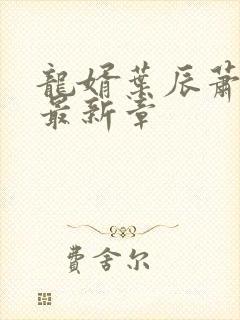 龍婿葉辰蕭
最新章
費舍尔